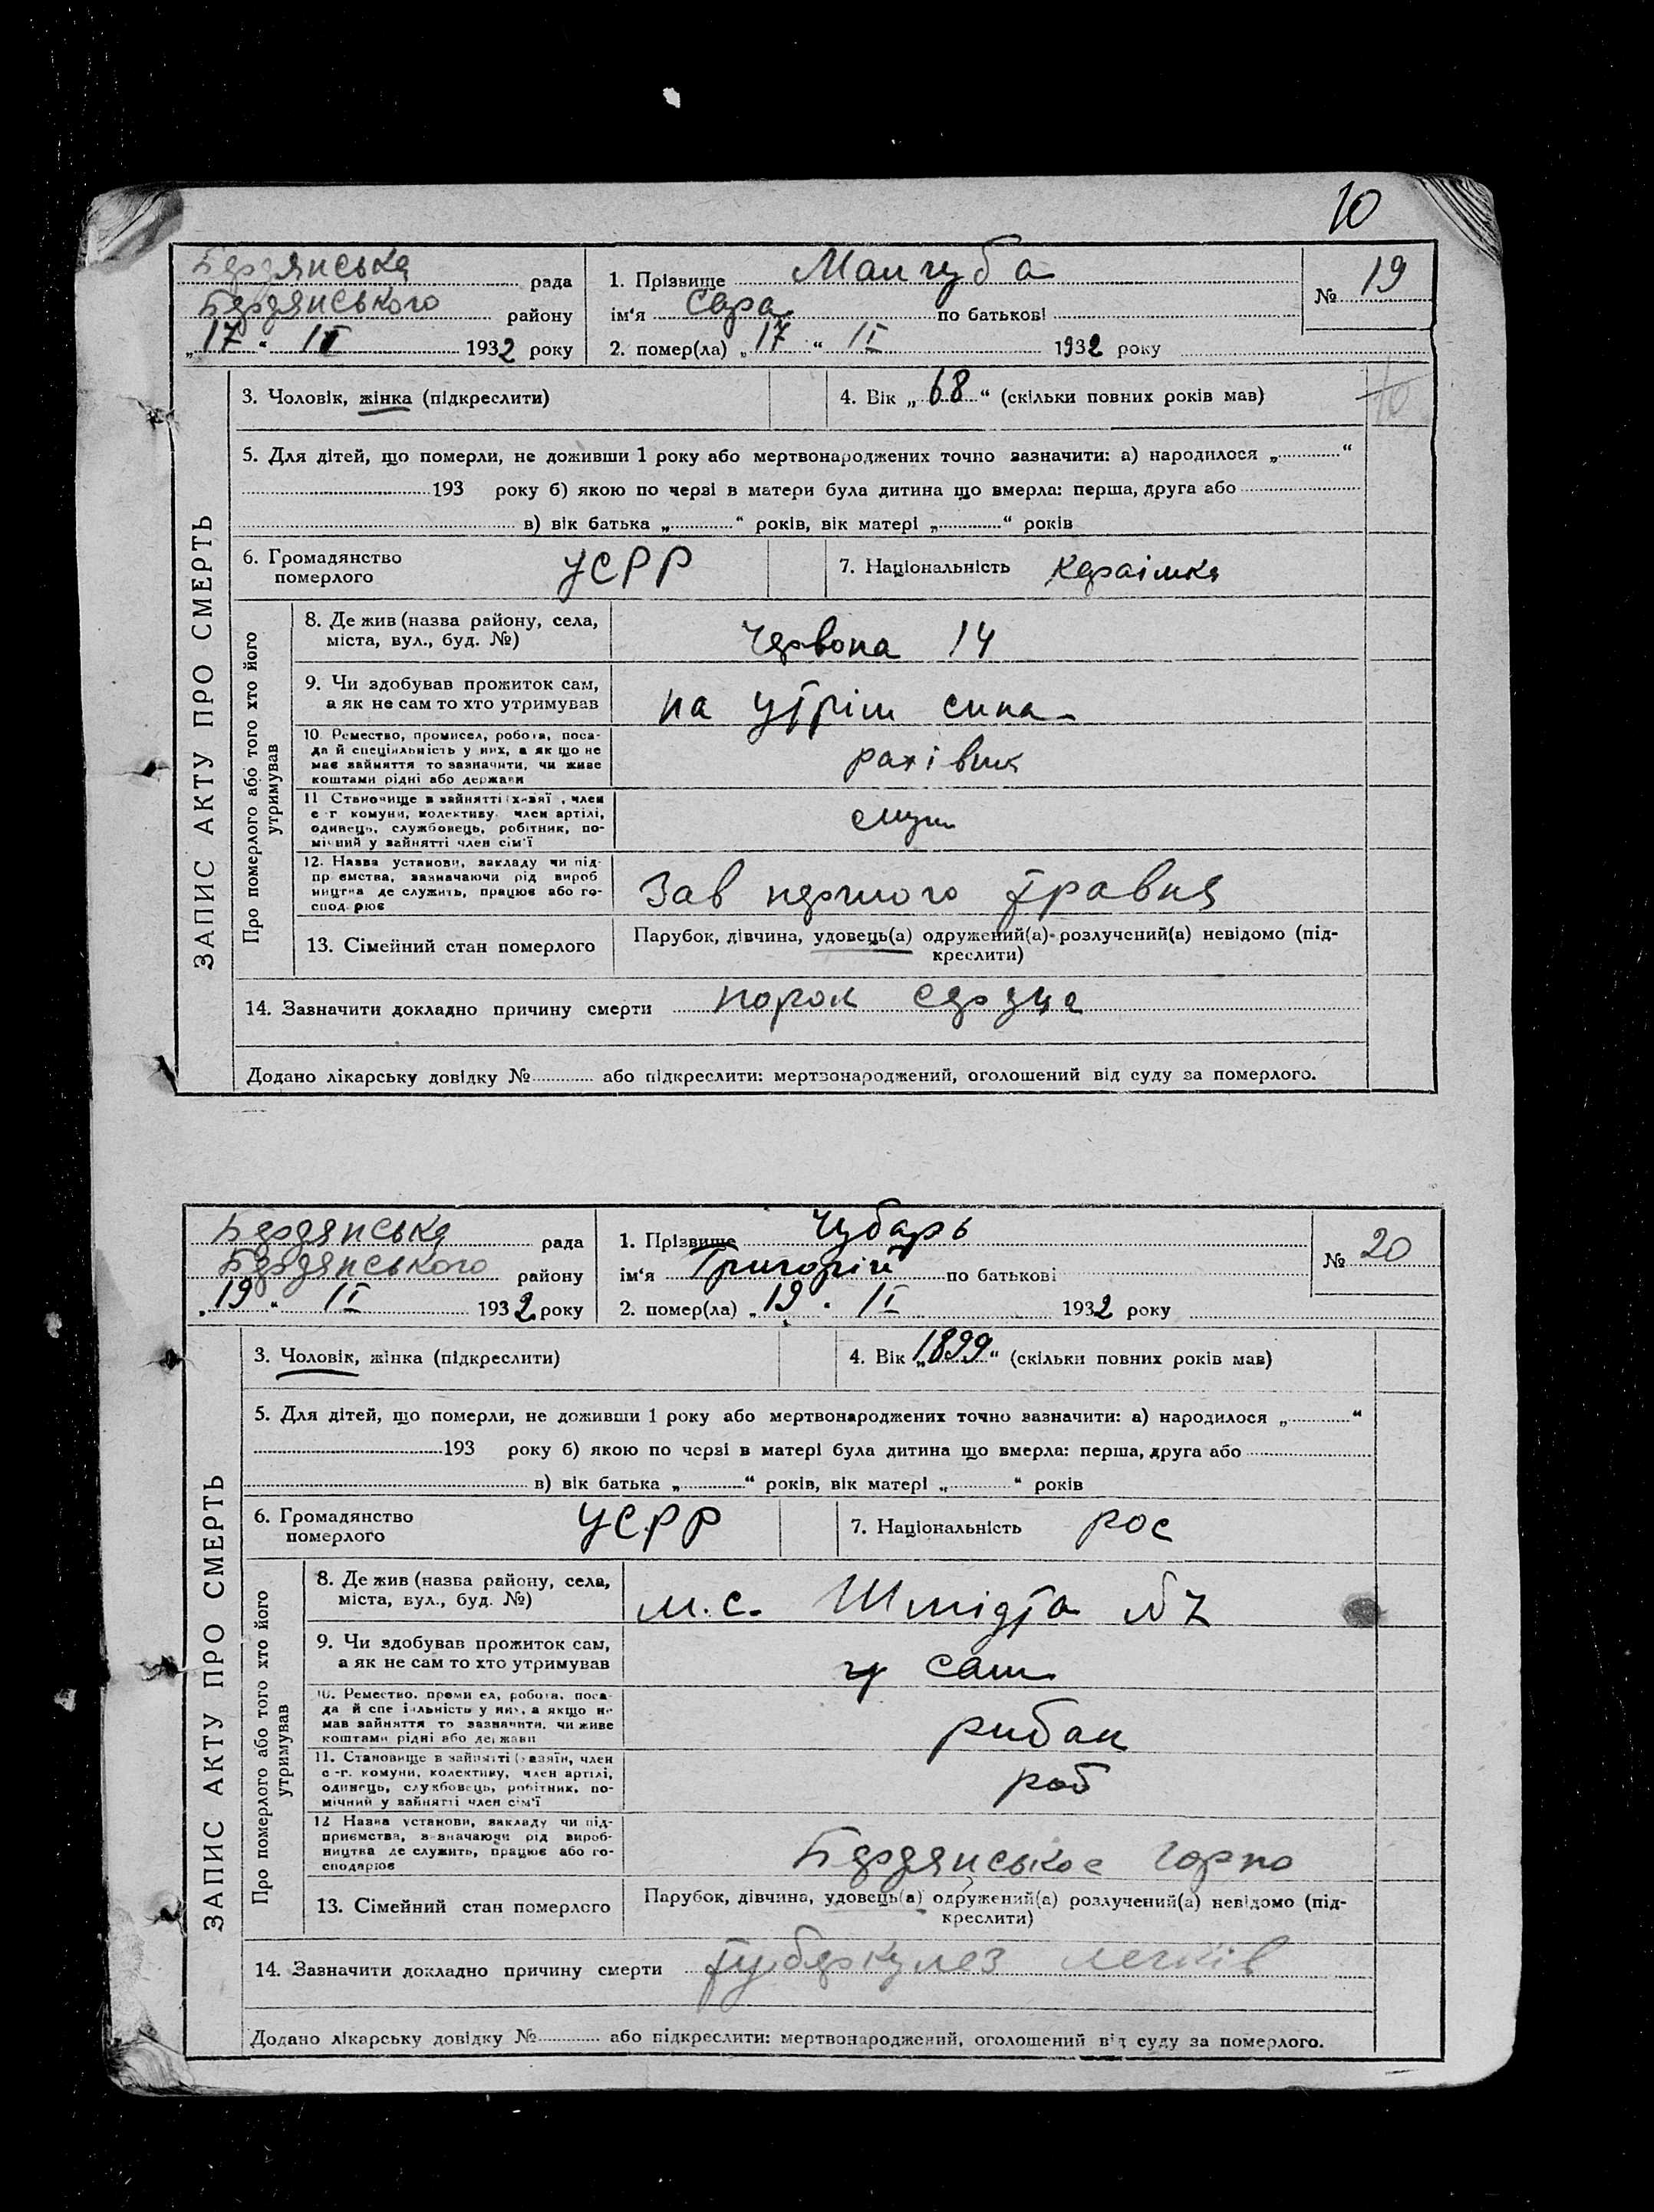 10
Бердянська рада 1. Прізвище Мангуба № 19
Бердянського району ім'я Сара по батькові
„17“ II 1932 року 2. помер(ла) „17“ II 1932 року
3. Чоловік, жінка (підкреслити) 4. Вік „68“ (скільки повних років мав)
5. Для дітей, що померли, не доживши 1 року або мертвонароджених точно зазначити: а) народилося „ “
193 року б) якою по черзі в матери була дитина що вмерла: перша, друга або
в) вік батька „ “ років, вік матері „ “ років
ЗАПИС АКТУ ПРО СМЕРТЬ
6. Громадянство померлого УСРР 7. Національність караімка
Про померлого або того хто його утримував
8. Де жив (назва району, села,
міста, вул., буд. №) Червона 14
9. Чи здобував прожиток сам,
а як не сам то хто утримував на утрім сина
10. Ремество, промисел, робота, поса-
да й спеціяльність у них, а як що не
має зайняття то зазначити, чи живе
коштами рідні або держави рахівник
11 Становище в зайнятті , член
с г комуни, колективу член артілі,
одинець, службовець, робітник, по-
мічний у зайнятті член сім'ї служ
12. Назва установи, закладу чи під-
пр ємства, зазначаючи рід вироб
ництва де служить, працює або го-
спод рює Зав першого травня
13. Сімейний стан померлого Парубок, дівчина, удовець(а) одружений(а) розлучений(а) невідомо (під-
креслити)
14. Зазначити докладно причину смерти порок сердца
Додано лікарську довідку № або підкреслити: мертвонароджений, оголошений від суду за померлого.
Бердянська рада 1. Прізвище Чубарь № 20
Бердянського району ім'я Григорій по батькові
„19“ II 1932 року 2. помер(ла) „19“ II 1932 року
3. Чоловік, жінка (підкреслити) 4. Вік „1899“ (скільки повних років мав)
5. Для дітей, що померли, не доживши 1 року або мертвонароджених точно зазначити: а) народилося „ “
193 року б) якою по черзі в матері була дитина що вмерла: перша, друга або
в) вік батька „ “ років, вік матері „ “ років
ЗАПИС АКТУ ПРО СМЕРТЬ
6. Громадянство померлого УСРР 7. Національність рос
Про померлого або того хто його утримував
8. Де жив (назва району, села,
міста, вул., буд. №) м.с. Шмідта №7
9. Чи здобував прожиток сам,
а як не сам то хто утримував сам
10. Ремество, проми ел, робота, поса-
да й спе іяльність у них, а якщо не
мав зайняття то зазначити, чи живе
коштами рідні або держави рибак
11. Становище в зайнятті (хазяїн, член
с-г. комуни, колективу, член артілі,
одинець, службовець, робітник, по-
мічний у зайнятті член сім'ї роб
12 Назва установи, закладу чи під-
приємства, зазначаючи рід вироб-
ництва де служить, працює або го-
сподарює Бердянськое
13. Сімейний стан померлого Парубок, дівчина, удовець(а) одружений(а) розлучений(а) невідомо (під-
креслити)
14. Зазначити докладно причину смерти туберкулез легків
Додано лікарську довідку № або підкреслити: мертвонароджений, оголошений від суду за померлого.